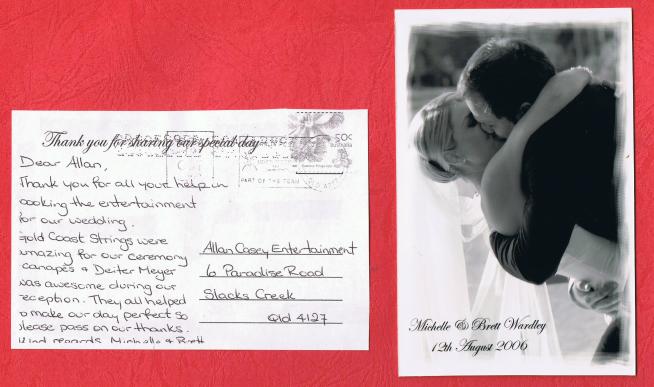 Thank you for sharing our special day
50c
australia
PART OF THE TEAM
Dear Allan,
Thank you for all your help in
booking the entertainment
for our wedding.
Gold Coast Strings were
amazing for our ceremony
canapes & Deiter Meyer
was awesome during our
reception. They all helped
to make our day perfect so
please pass on our thanks.
Kind regards Michelle & Brett
Allan Casey Entertainment
6 Paradise Road
Slacks Creek
Qld 4127
Michelle & Brett Wardley
12th August 2006